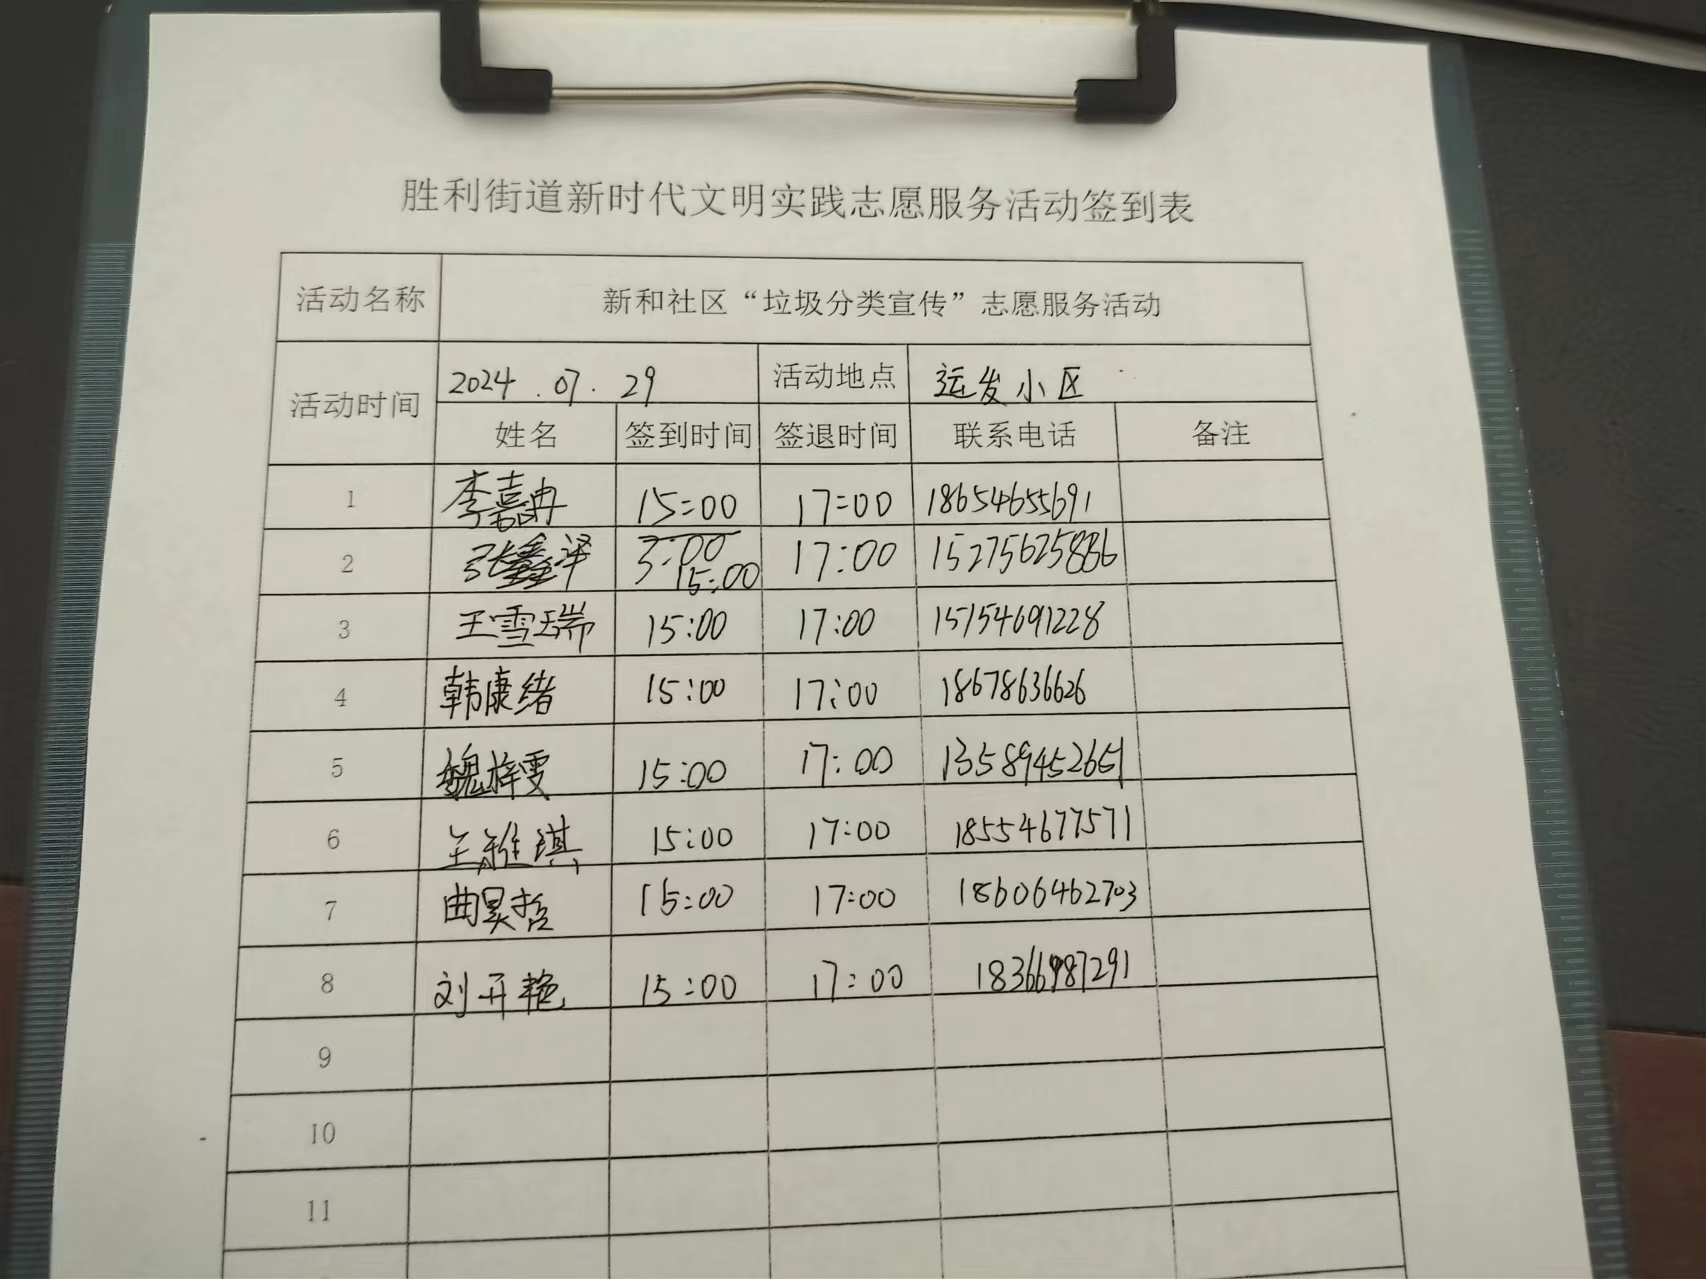 胜利街道新时代文明实践志愿服务活动签到表
活动名称 新和社区“垃圾分类宣传”志愿服务活动
活动时间 2024.07.29 活动地点 运发小区
姓名 签到时间 签退时间 联系电话 备注
1 李嘉冉 15:00 17:00 18654655691
2 张鑫泽 3:00 15:00 17:00 15275625886
3 王雪瑞 15:00 17:00 15154691228
4 韩康绪 15:00 17:00 18678636626
5 魏梓雯 15:00 17:00 13589452651
6 王雅琪 15:00 17:00 18554677571
7 曲昊哲 15:00 17:00 18606462703
8 刘开艳 15:00 17:00 18366987291
9
10
11